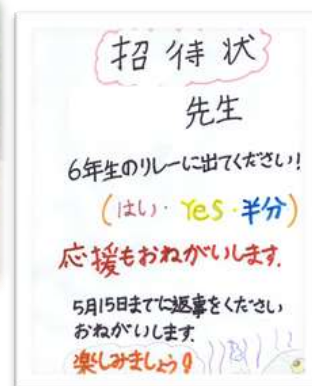 招待状
先生
6年生のリレーに出てください!
(はい・Yes・半分)
応援もおねがいします。
5月15日までに返事をください
おねがいします。
楽しみましょう!